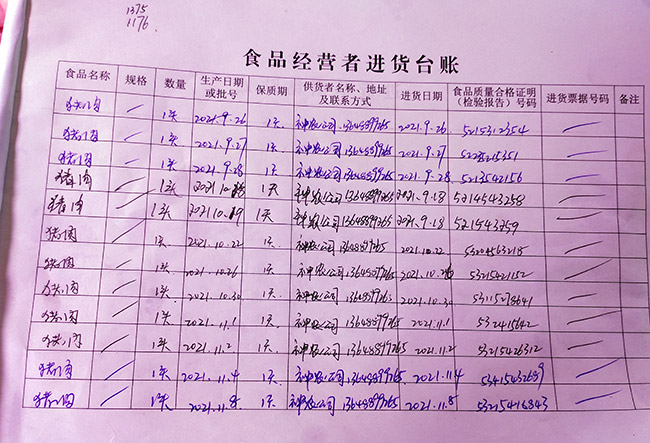 1375
1176
食品经营者进货台账
食品名称 规格 数量 生产日期或批号 保质期 供货者名称、地址及联系方式 进货日期 食品质量合格证明(检验报告)号码 进货票据号码 备注
猪肉 / 1头 2021.9.26 1天 神农公司 13648899765 2021.9.26 5215312354 /
猪肉 / 1头 2021.9.27 1天 神农公司 13648899765 2021.9.27 5225215351 /
猪肉 / 1头 2021.9.28 1天 神农公司 13648899765 2021.9.28 5213542156 /
猪肉 / 1头 1天 神农公司 13648899765 2021.9.18 5214543258 /
猪肉 / 1头 1天 神农公司 13648899765 2021.9.18 521543259 /
猪肉 / 1头 2021.10.22 1天 神农公司 13648899765 2021.10.22 /
猪肉 / 1头 2021.10.26 1天 神农公司 13648899765 2021.10.26 53215421152 /
猪肉 / 1头 2021.10.30 1天 神农公司 13648899765 2021.10.30 53115218641 /
猪肉 / 1头 2021.11.1 1天 神农公司 13648899765 2021.11.1 532415642 /
猪肉 / 1头 2021.11.2 1天 神农公司 13648899765 2021.11.2 53215426312 /
猪肉 / 1头 2021.11.4 1天 神农公司 13648899765 2021.11.4 /
猪肉 / 1头 2021.11.8 1天 神农公司 13648899765 2021.11.8 53215416843 /